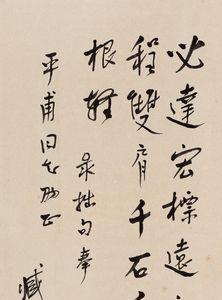 必达宏標遠
程雙肩千石
根輕 录拙句奉
平甫同志两正
臧